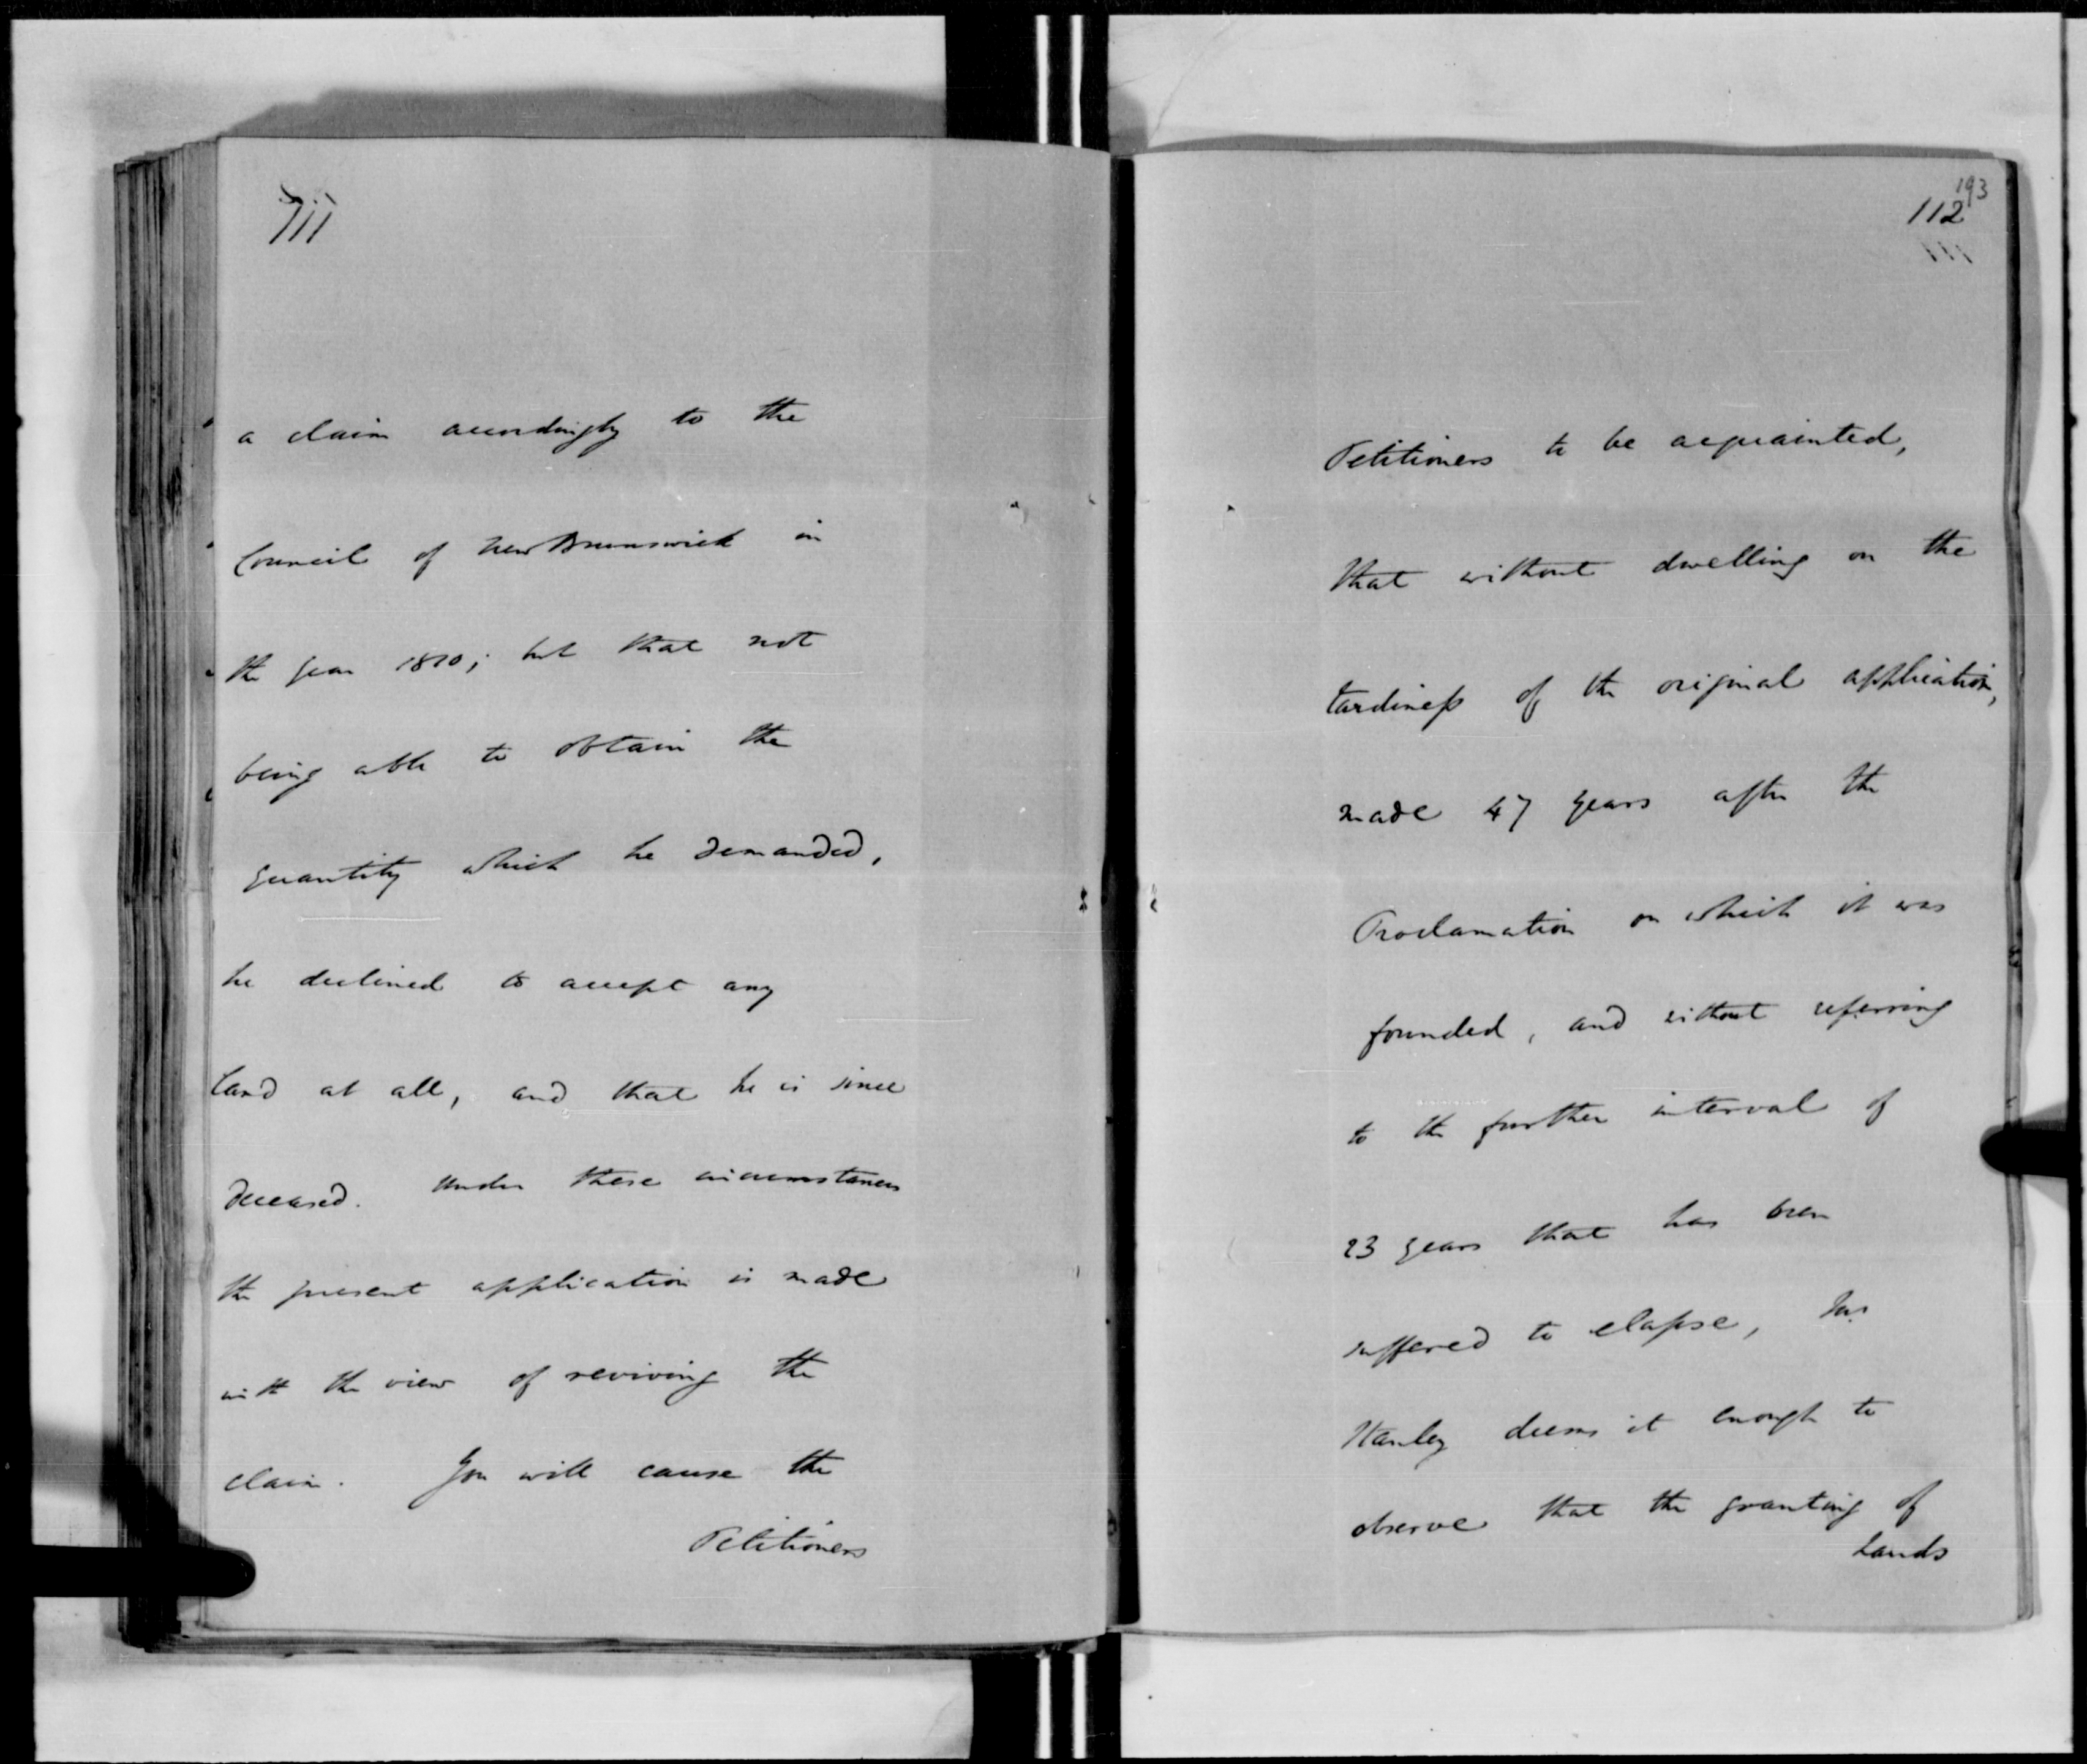 111
a claim accordingly to the
Council of New Brunswick in
the year 1810; but that not
being able to obtain the
quantity which he demanded,
he declined to accept any
land at all, and that he is since
deceased. Under these circumstances
the present application is made
with the view of reviving the
claim. You will cause the
Petitioners
193
112
111
Petitioners to be acquainted,
that without dwelling on the
tardiness of the original application,
made 47 years after the
Proclamation on which it was
founded, and without referring
to the further interval of
23 years that has been
suffered to elapse, Mr
Stanley deems it enough to
observe that the granting of
Lands